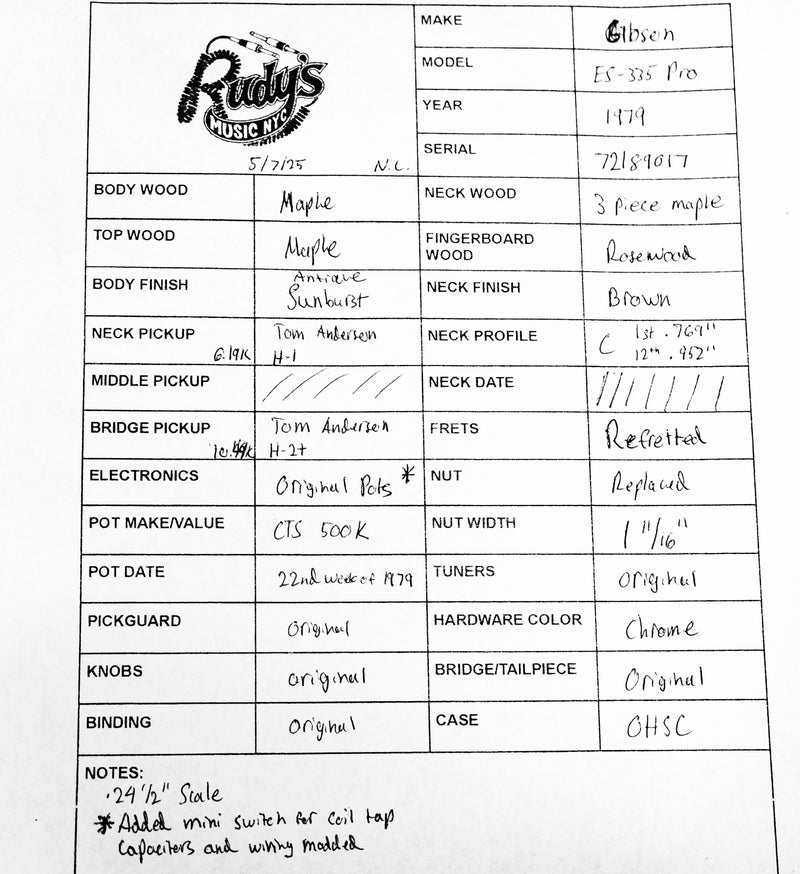 Rudy's
MUSIC NYC
5/7/25 N.C.
MAKE Gibson
MODEL ES-335 Pro
YEAR 1979
SERIAL 72189017
BODY WOOD Maple NECK WOOD 3 piece maple
TOP WOOD Maple FINGERBOARD WOOD Rosewood
BODY FINISH Antique Sunburst NECK FINISH Brown
NECK PICKUP 6.19K Tom Anderson H-1 NECK PROFILE C 1st .769" 12th .952"
MIDDLE PICKUP ///// NECK DATE ///////
BRIDGE PICKUP Tom Anderson H-2+ FRETS Refretted
ELECTRONICS Original Pots * NUT Replaced
POT MAKE/VALUE CTS 500K NUT WIDTH 1 11/16"
POT DATE 22nd week of 1979 TUNERS Original
PICKGUARD Original HARDWARE COLOR Chrome
KNOBS original BRIDGE/TAILPIECE Original
BINDING Original CASE OHSC
NOTES:
·24 1/2" Scale
*Added mini switch for coil tap
Capacitors and wiring modded